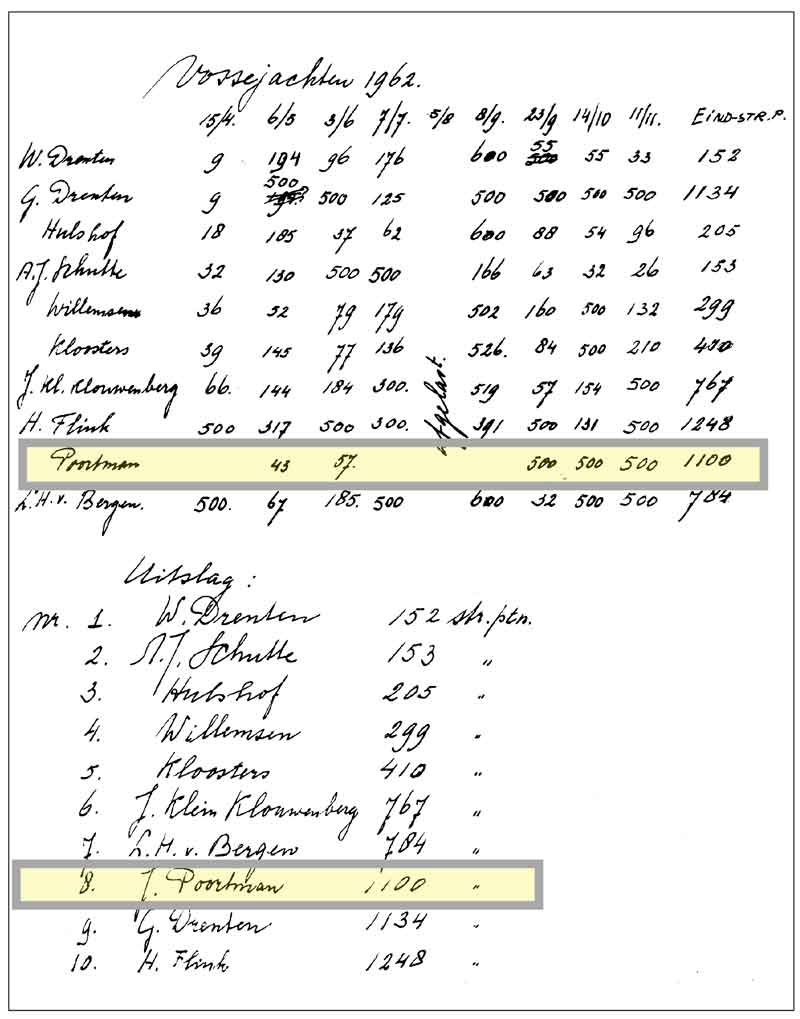 Vossejachten 1962.
15/4. 6/5 3/6 7/7. 5/8 8/9. 23/9 14/10 11/11. EIND-STR.P.
W. Drenten 9 194 96 176 600 55 55 33 152
G. Drenten 9 500 500 125 500 500 500 500 1134
Hulshof 18 185 37 62 600 88 54 96 205
A.J. Schutte 32 130 500 500 166 63 32 26 153
Willemsen 36 52 79 179 502 160 500 132 299
Kloosters 39 145 77 136 526. 84 500 210 410
J. Kl. Klouwenberg 66. 144 184 300. 519 57 154 500 767
H. Flink 500 317 500 300. 391 500 131 500 1248
Afgelast.
Poortman 43 57. 500 500 500 1100
L.H.v. Bergen. 500. 67 185. 500 600 32 500 500 784
Uitslag :
Nr. 1. W. Drenten 152 str.ptn.
2. A.J. Schutte 153 "
3. Hulshof 205 "
4. Willemsen 299 "
5. Kloosters 410 "
6. J. Klein Klouwenberg 767 "
7. L.H. v. Bergen 784 "
8. J. Poortman 1100 "
9. G. Drenten 1134 "
10. H. Flink 1248 "